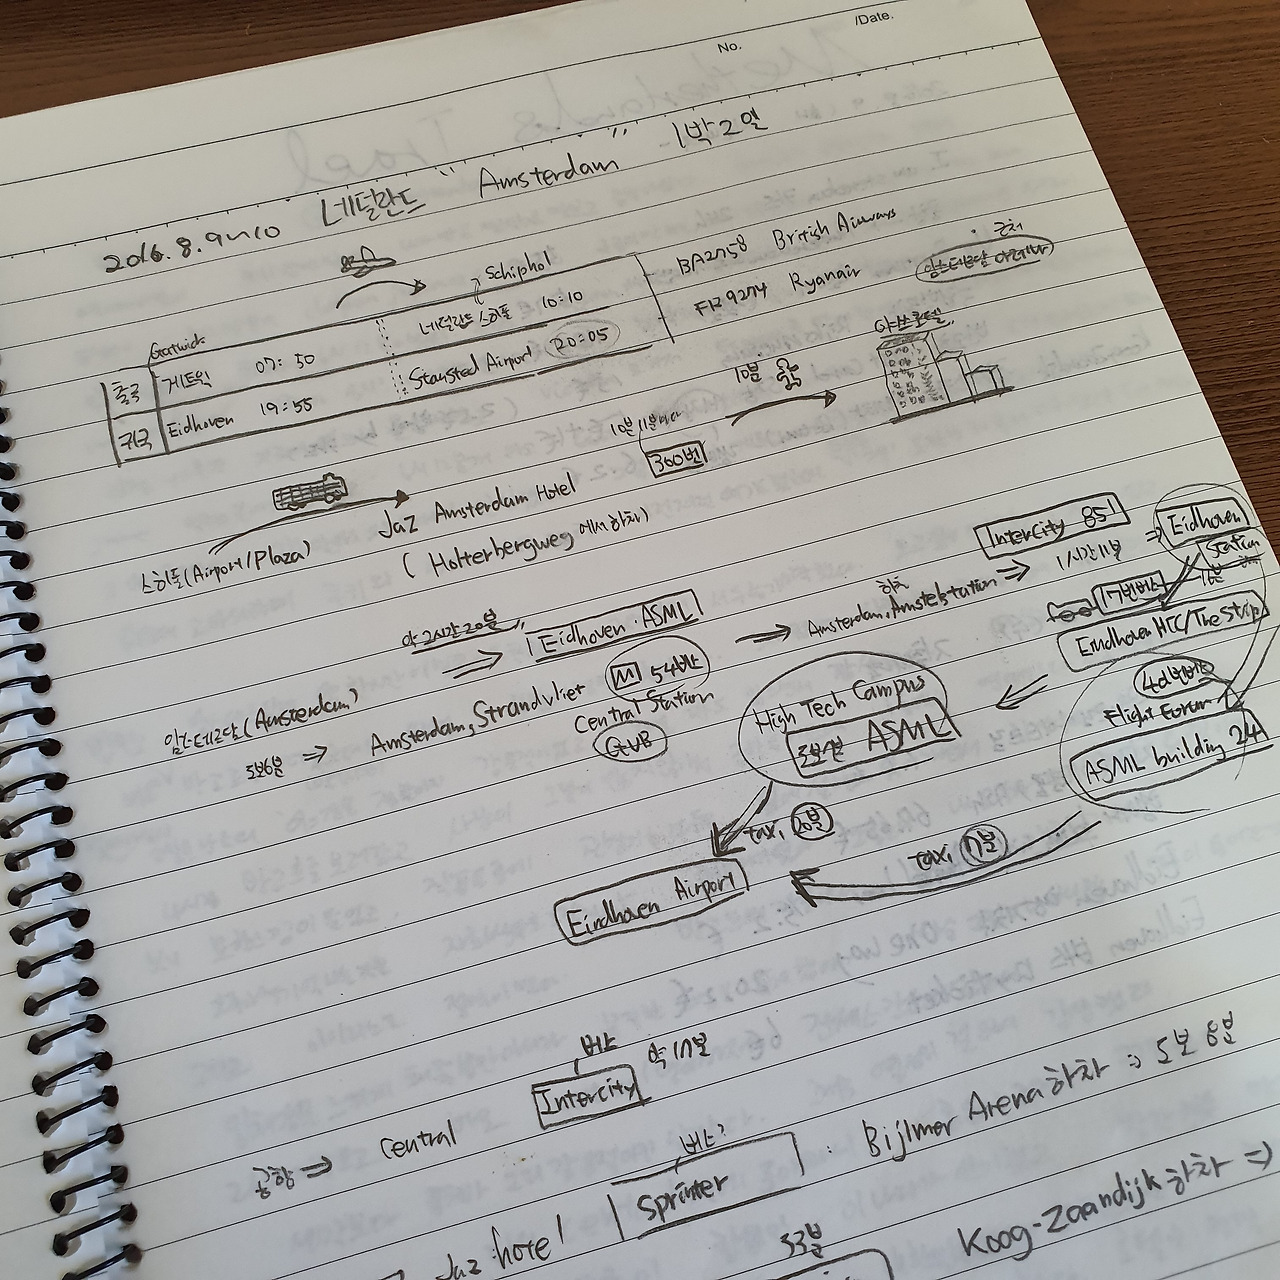 No.
/Date.
2016.8.9~10 네덜란드 "Amsterdam" 1박2일
Schiphol
BA2758 British Airways
Gatwick
출국 게트윅 07:50 네덜란드 스히폴 10:10
FR9274 Ryanair
근처
암스테르담 아레나
귀국 Eidhoven 19:55 Stansted Airport 20:05
야쓰호텔
10분
300번
스히폴(Airport/Plaza)
Jaz Amsterdam Hotel
(Holterbergweg에서 하차)
약 2시간20분
Eidhoven·ASML
암스테르담(Amsterdam)
도보6분 ⇒ Amsterdam, Strandvliet
M 54버스
Central Station
GVB
⇒ Amsterdam, Amstelstation ⇒
하차
Intercity 851
1시간11분
⇒ Eidhoven
Station
17번버스
Eindhoven HTC/The Strip
High Tech Campus
ASML
Flight Forum
ASML building 24
taxi 20분
taxi 17분
Eindhoven Airport
공항 ⇒ Central
버스
Intercity
약 17분
Jaz hotel
버스?
Sprinter
Bijlmer Arena하차 ⇒ 도보 8분
33분
Koog-Zaandijk하차 ⇒